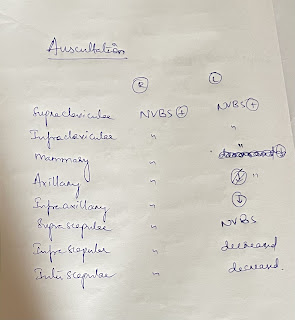 Auscultation
R L
Supraclavicular NVBS + NVBS +
Infraclavicular " "
Mammary " "
Axillary " ↓ "
Infraaxillary " ↓
Suprascapular " NVBS
Infrascapular " decreased
Interscapular " decreased.